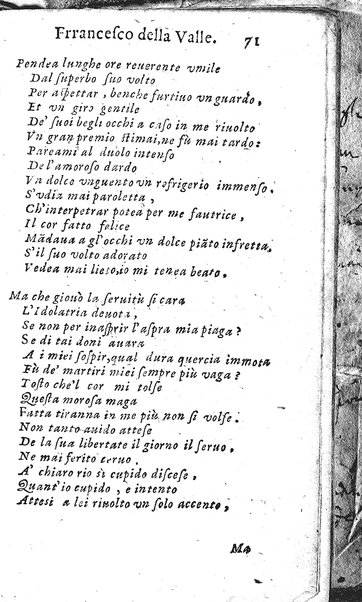 Frrancesco della Valle. 71
Pendea lunghe ore reuerente vmile
Dal superbo suo volto
Per aspettar, benche furtiuo vn guardo,
Et vn giro gentile
De' suoi begli occhi a caso in me riuolto
Vn gran premio stimai, ne fù mai tardo:
Pareami al duolo intenso
Del'amoroso dardo
Vn dolce vnguento vn refrigerio immenso.
S'vdia mai paroletta,
Ch'interpetrar potea per me fautrice,
Il cor fatto felice
Mãdaua a gl'occhi vn dolce piãto infretta.
S'il suo volto adorato
Vedea mai lieto, io mi tenea beato.
Ma che giouò la seruitù si cara
L'Idolatria deuota,
Se non per inasprir l'aspra mia piaga?
Se di tai doni auara
A i miei sospir, qual dura quercia immota
Fù de' martiri miei sempre più vaga?
Tosto che'l cor mi tolse
Questa morosa maga
Fatta tiranna in me più non si volse.
Non tanto auido attese
De la sua libertate il giorno il seruo,
Ne mai ferito ceruo
A' chiaro rio sì cupido discese,
Quant'io cupido, e intento
Attesi a lei riuolto vn solo accento,
Ma